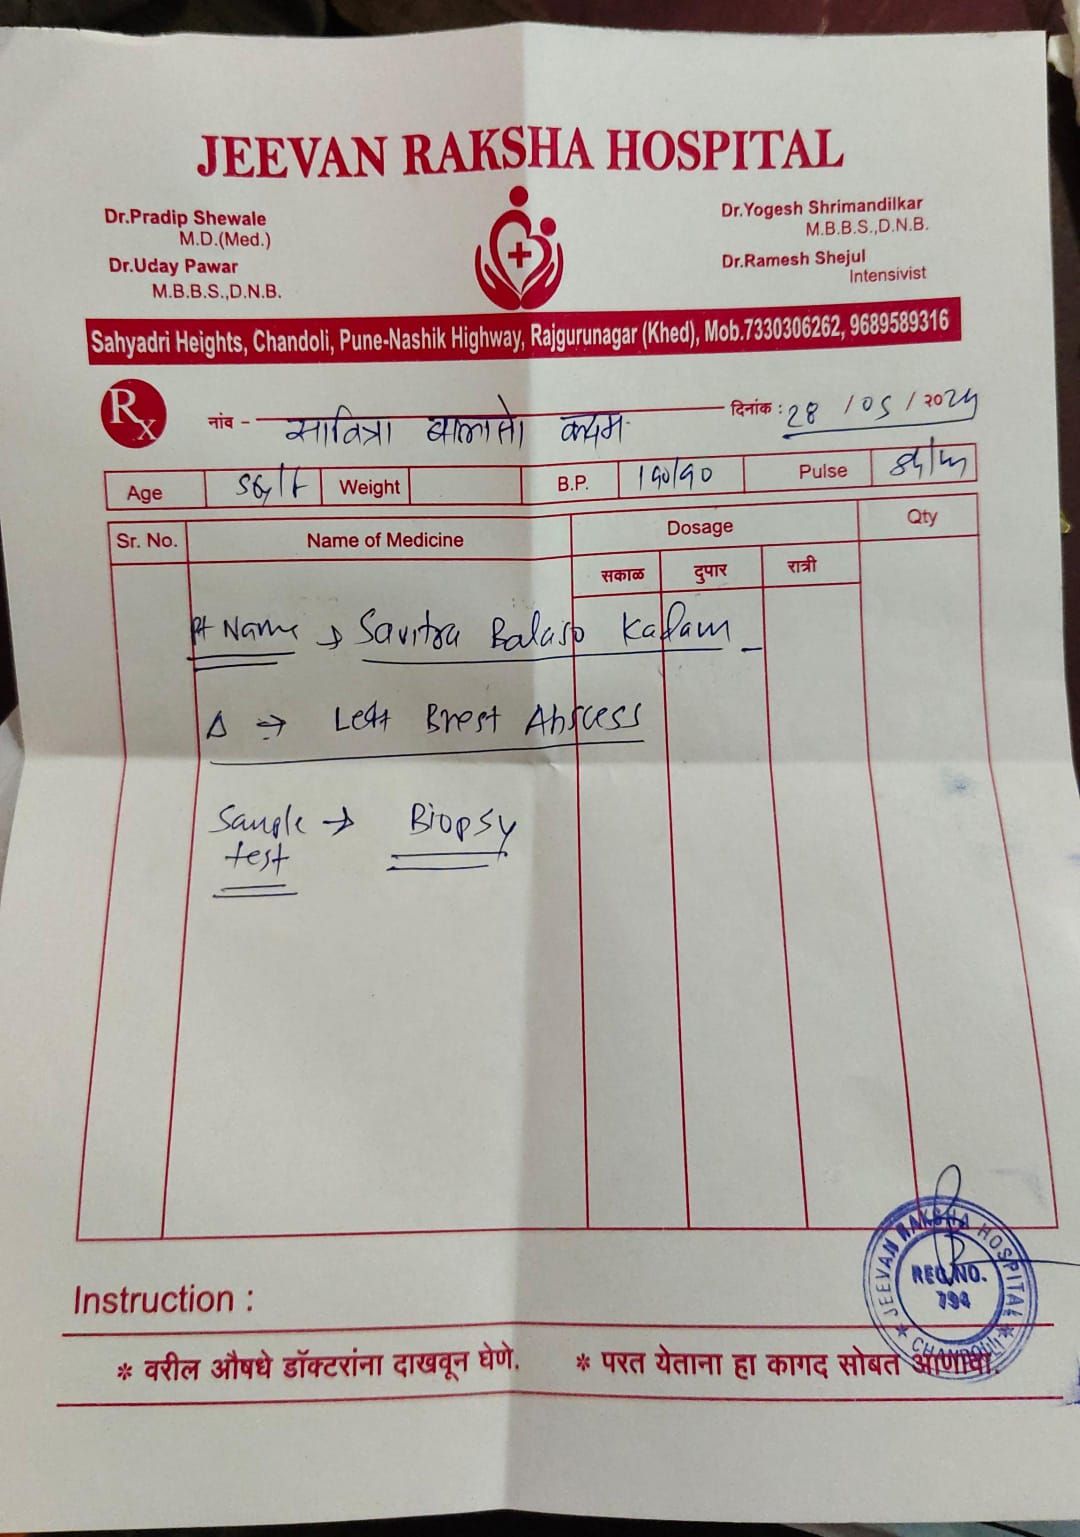 JEEVAN RAKSHA HOSPITAL
Dr.Pradip Shewale
M.D.(Med.)
Dr.Uday Pawar
M.B.B.S.,D.N.B.
Dr.Yogesh Shrimandilkar
M.B.B.S.,D.N.B.
Dr.Ramesh Shejul
Intensivist
Sahyadri Heights, Chandoli, Pune-Nashik Highway, Rajgurunagar (Khed), Mob.7330306262, 9689589316
Rx
नांव - सावित्रा बाळासो कदम दिनांक : 28 / 05 / २०२५
Age Weight B.P. Pulse
Sr. No. Name of Medicine Dosage Qty
सकाळ दुपार रात्री
Pt Name → Savitra Balaso Kadam
Δ → Left Brest Abscess
Sample → Biopsy
test
JEEVAN RAKSHA HOSPITAL
REG.NO.
794
CHANDOLI
Instruction :
* वरील औषधे डॉक्टरांना दाखवून घेणे. * परत येताना हा कागद सोबत आणावा.